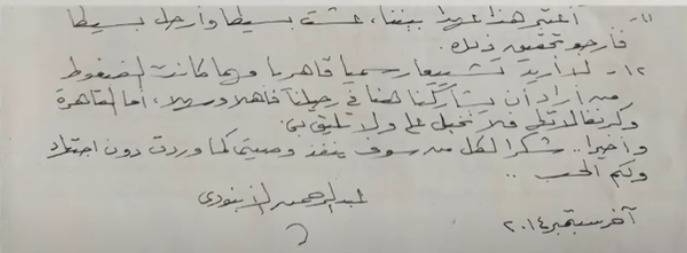 ١١- أعتبر هذا عهدا بيننا، عشت بسيطا وأرحل بسيطا
فأرجو تحقيق ذلك.
١٢- لا أريد تشييعا رسميا قاهريا مهما كانت الضغوط
من أراد أن يشاركنا هنا في رحيلنا فأهلا وسهلا، أما القاهرة
وكرنفالاتها فلا تخيل علي ولا تليق بي.
وأخيرا.. شكرا لكل من سوف ينفذ وصيتي كما وردت دون اجتهاد
ولكم الحب ..
عبدالرحمن الأبنودي
آخر سبتمبر ٢٠١٤